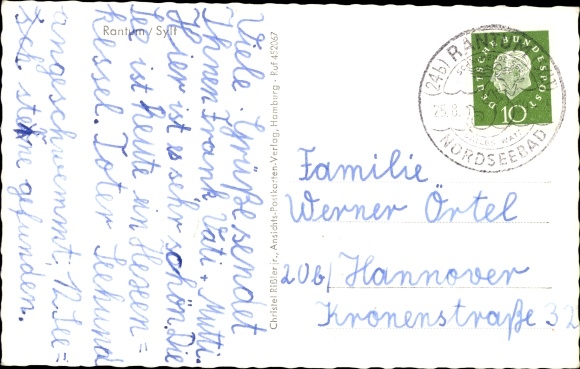 Rantum / Sylt
Viele Grüße sendet
Ihnen Frank Vati + Mutti.
Hier ist es sehr schön. Die
See ist heute ein Hexen=
kessel. Toter Seehund
angeschwemmt, 12 See=
sterne gefunden.
Christel Rißler jr., Ansichts-Postkarten-Verlag, Hamburg · Ruf 452067
(24b) RAN
25.8.
NORDSEEBAD
DEUTSCHE BUNDESPOST
10
Familie
Werner Örtel
20b/ Hannover
Kronenstraße 32